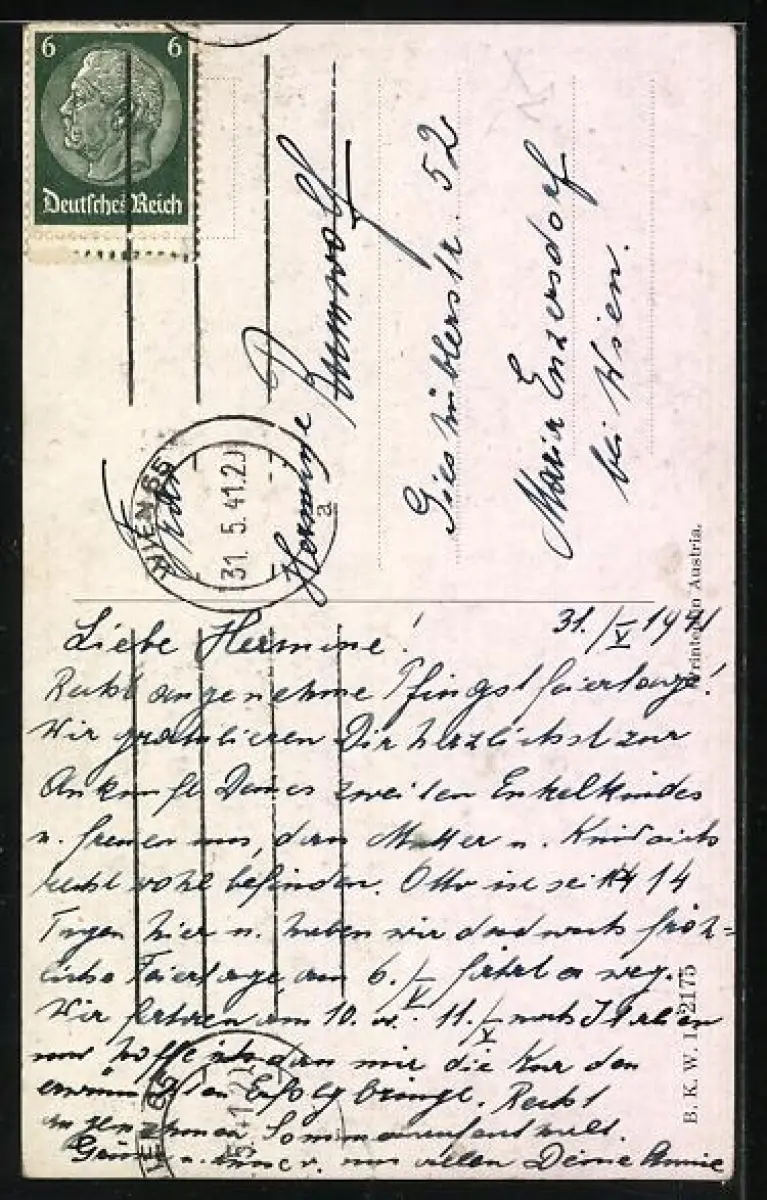 6 6
Deutsches Reich
WIEN 65
31. 5. 41. 20
a
Hermine Rumwolf
Gieshüblerstr. 52
Maria Enzersdorf
bei Wien.
Printed in Austria.
B. K. W. I. 2175
31./V 1941
Liebe Hermine!
Recht angenehme Pfingstfeiertage!
Wir gratulieren Dir herzlichst zur
Ankunft Deines zweiten Enkelkindes
u. freuen uns, dass Mutter u. Kind sich
recht wohl befinden. Otto ist seit 14
Tagen hier u. haben wir dadurch fröh=
liche Feiertage, am 6./V fährt er weg.
Wir fahren am 10. u. 11./V nach
und hoffen dass mir die Kur den
erwünschten Erfolg bringt. Recht
angenehmen Sommeraufenthalt.
Grüsse u. von uns vielen Deine Annie